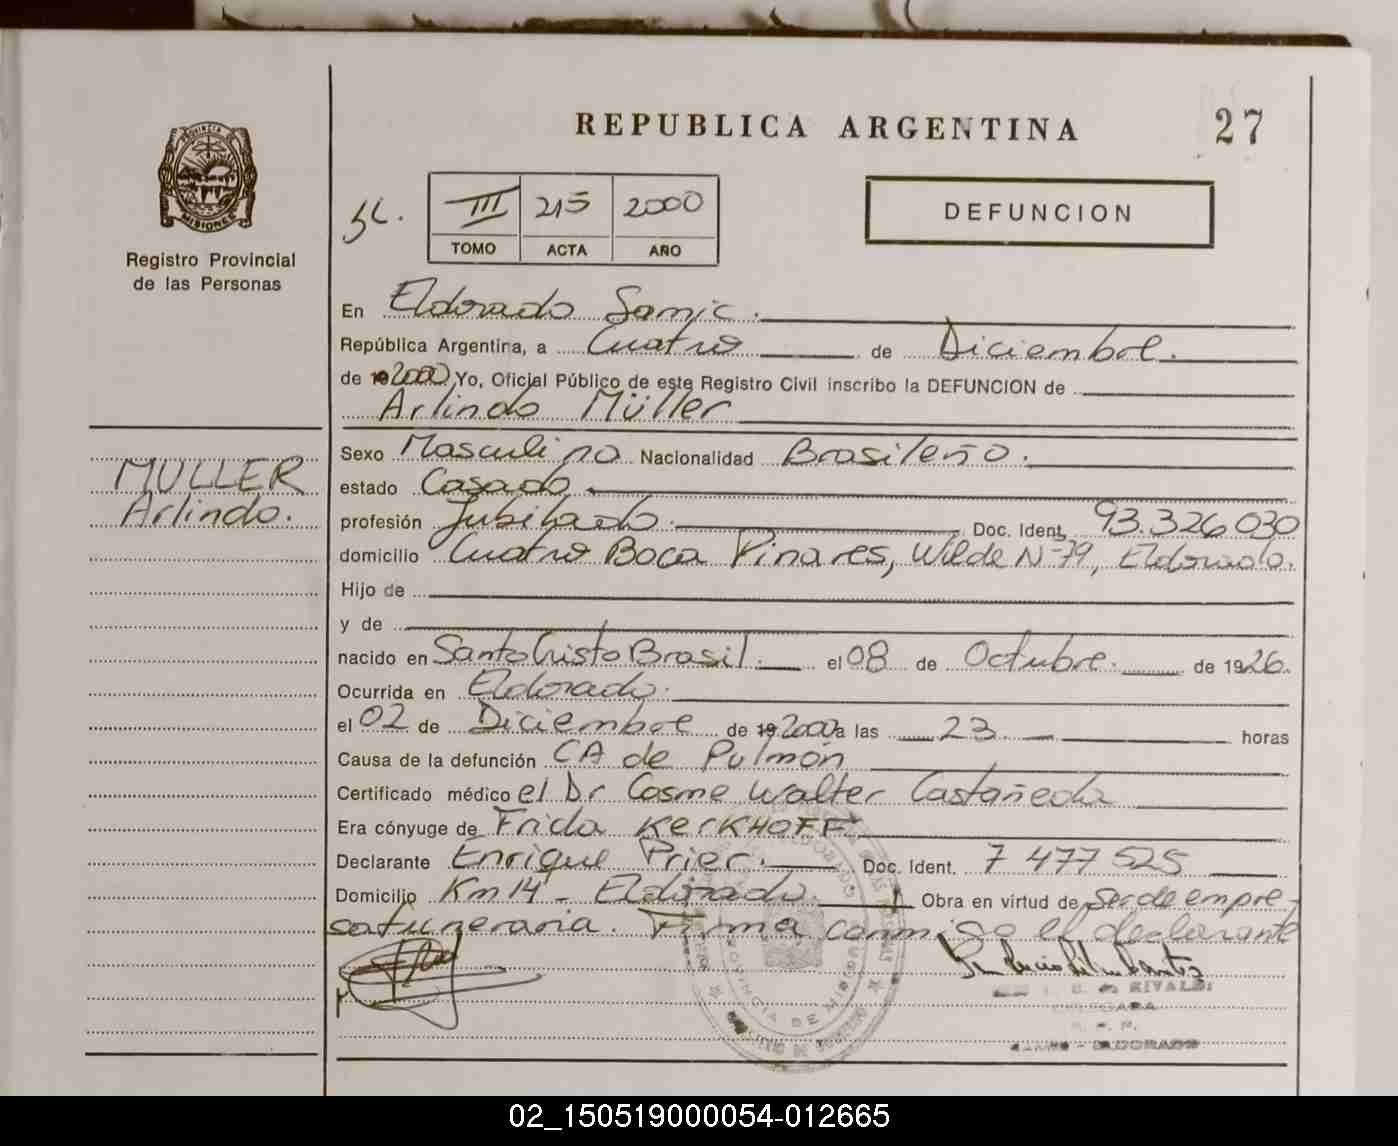 REPUBLICA ARGENTINA
27
PROVINCIA DE
MISIONES
Registro Provincial
de las Personas
III 215 2000
TOMO ACTA AÑO
DEFUNCION
En Eldorado Samic.
República Argentina, a Cuatro de Diciembre.
de 2000 Yo, Oficial Público de este Registro Civil inscribo la DEFUNCION de
Arlindo Müller
MULLER
Arlindo.
Sexo Masculino Nacionalidad Brasileño.
estado Casado
profesión Jubilado. Doc. Ident. 93.326 030
domicilio Cuatro Boca Pinares, Wilde N-79, Eldorado.
Hijo de
y de
nacido en Santo Cristo Brasil. el 08 de Octubre. de 1926.
Ocurrida en Eldorado.
el 02 de Diciembre de 2000 a las 23 horas
Causa de la defunción CA de Pulmón
Certificado médico el Dr Cosme Walter Castañeda
Era cónyuge de Frida KERKHOFF
Declarante Enrique Prier. Doc. Ident. 7 477 525
Domicilio Km 14 - Eldorado. Obra en virtud de Ser de empre-
sa funeraria. Firma conmigo el declarante
RIVALDI
ELDORADO
PROVINCIA DE MISIONES
02_150519000054-012665